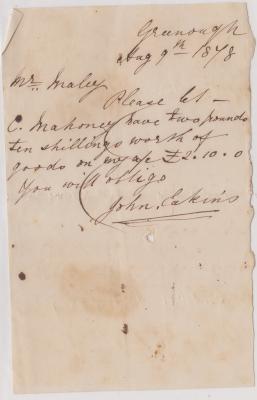 Greenough
Aug 9th 1878
Mr. Maley
Please let
C. Mahoney have two pounds
ten shillings worth of
goods on my a/c £2.10.0
You will oblige
John Eakins